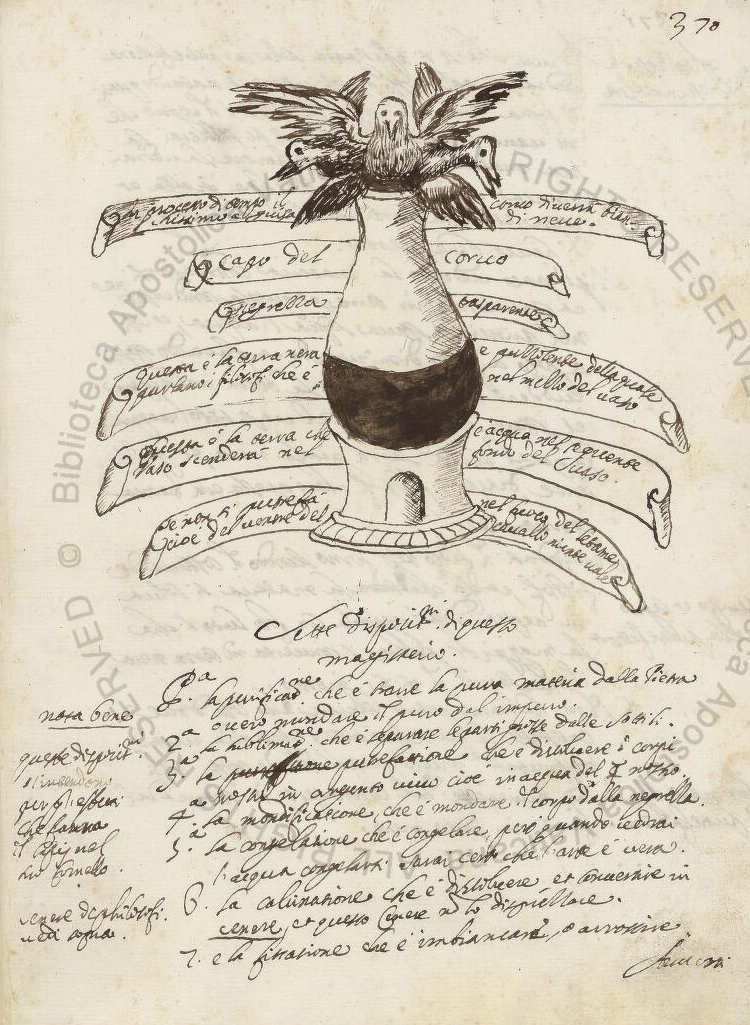 370
in processo di tempo il
corvo diverrà bian-
di neve.
Capo del corvo
negrella
trasparente
questa è la terra nera
parlano i filosofi che è
e pullolente della quale
nel mezzo del vaso
questa è la terra che
vaso scenderà nel
e acqua nel
fondo del Vaso.
se non si putrefà
cioè del ventre del
nel fuoco del letame
cavallo niente vale
Sette disposit.ni di questo
magisterio.
P.a la purificat.ne che è trarre la pura materia dalla Pietra
overo mondare il puro dal impuro.
2.a la sublimat.ne che è separare le parti grosse dalle sottili.
3.a la putrefazione che è dissolvere i corpi
nostri in argento vivo cioè in acqua del nostro.
4.a la mondificazione, che è mondare il corpo dalla negrella.
5.a la congelazione che è congelare, però quando vedrai
l'acqua congelarsi sarai certo che l'arte è vera.
6. la calcinatione che è dissolvere et convertire in
cenere, et questo cenere nò lo disprezzare.
7. e la fissatione che è imbiancare, o arrossire.
nota bene
queste disposit.ni
s'intendono
per gl'effetti
che fanno
nel
suo fornello.
cenere de philosofi.
vedi sopra.